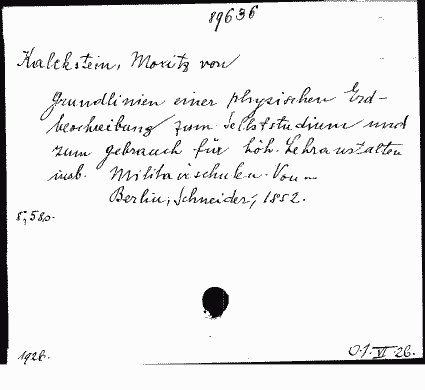 89636
Kalckstein, Moritz von
Grundlinien einer physischen Erd-
beschreibung zum Selbststudium und
zum gebrauch für höh. Lehranstalten
insb. Militairschulen. Von —
Berlin, Schneider, 1852.
8°, 580.
1926.
O.J. VI 26.